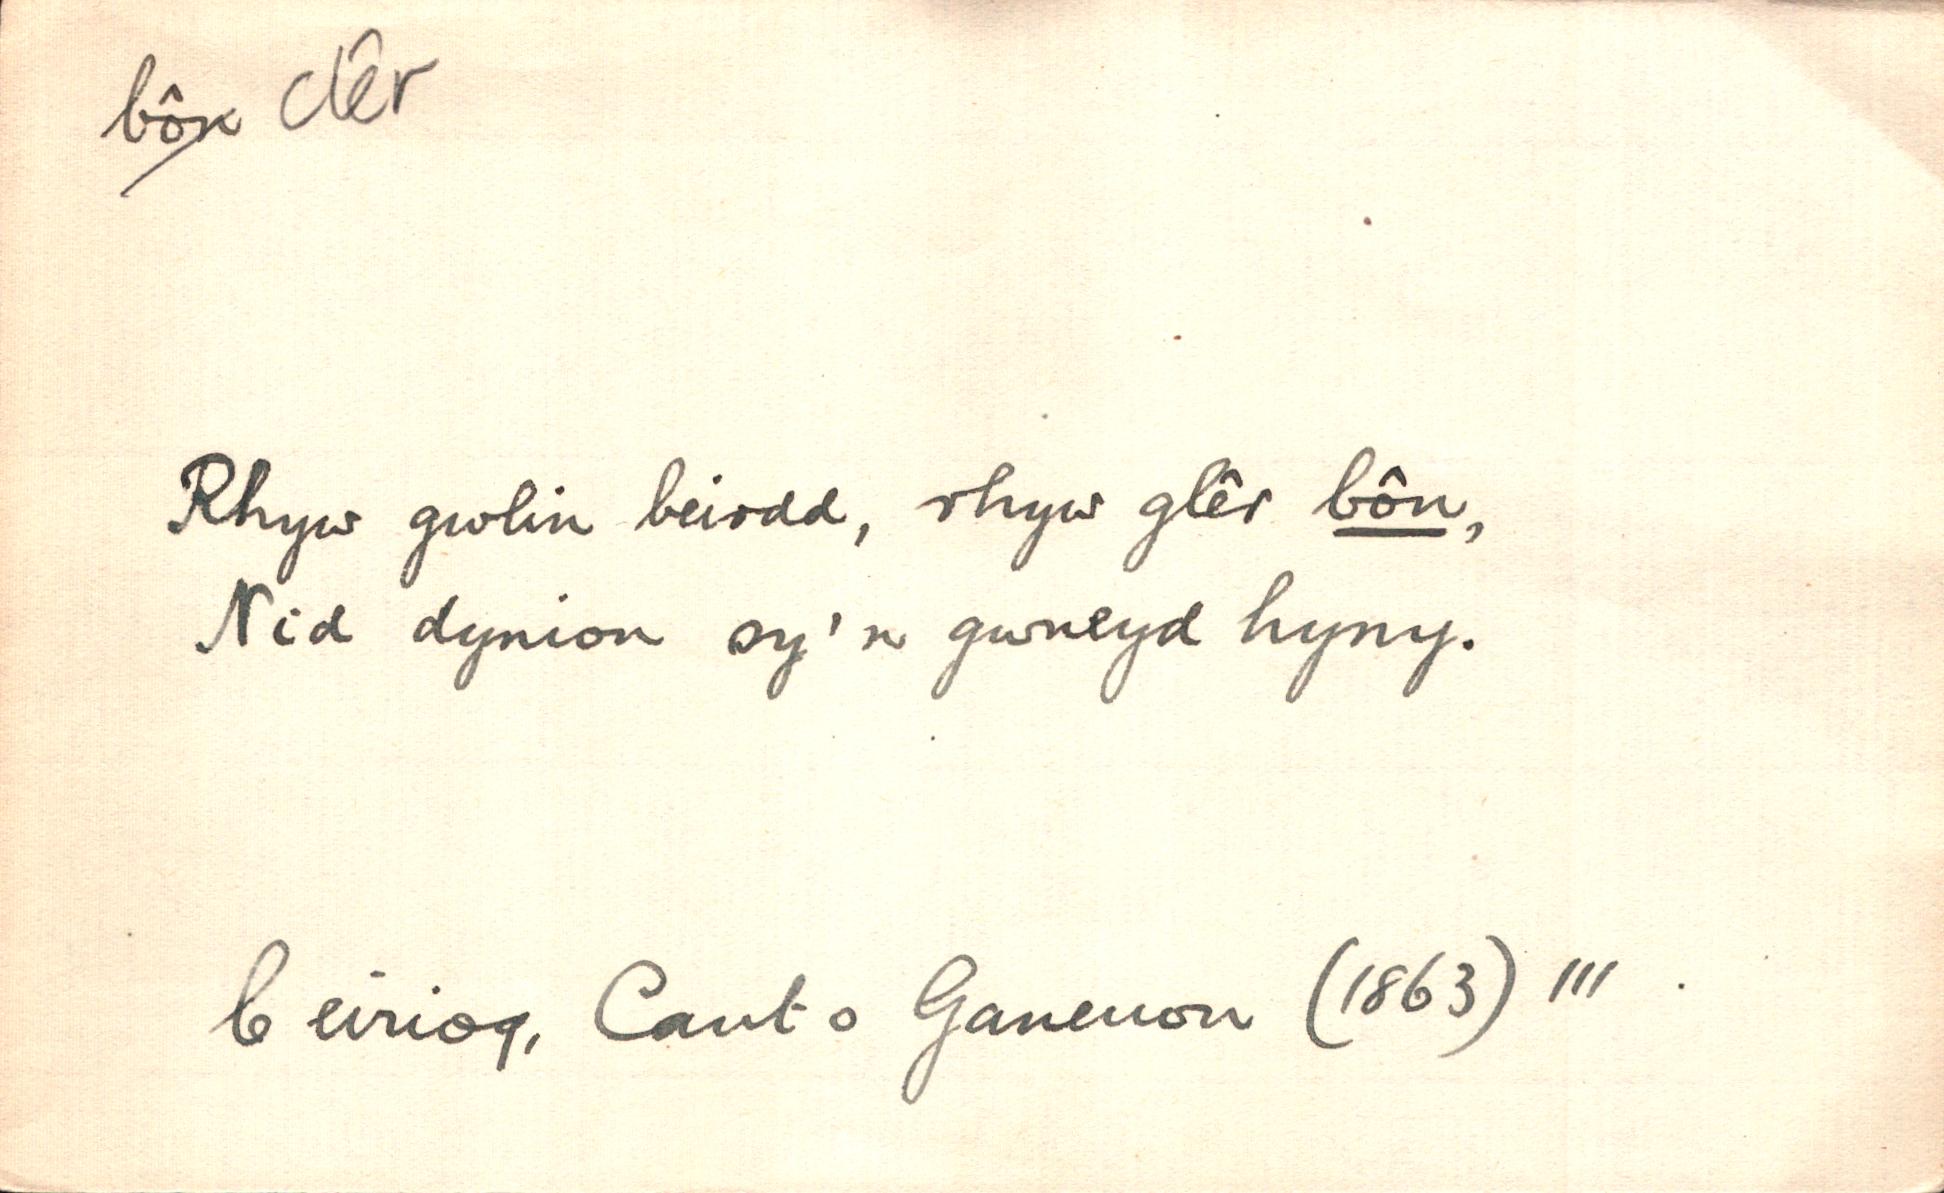 bôn clêr
Rhyw gwlin beirdd, rhyw glêr bôn,
Nid dynion sy'n gwneyd hyny.
Ceiriog, Cant o Ganeuon (1863) 111.